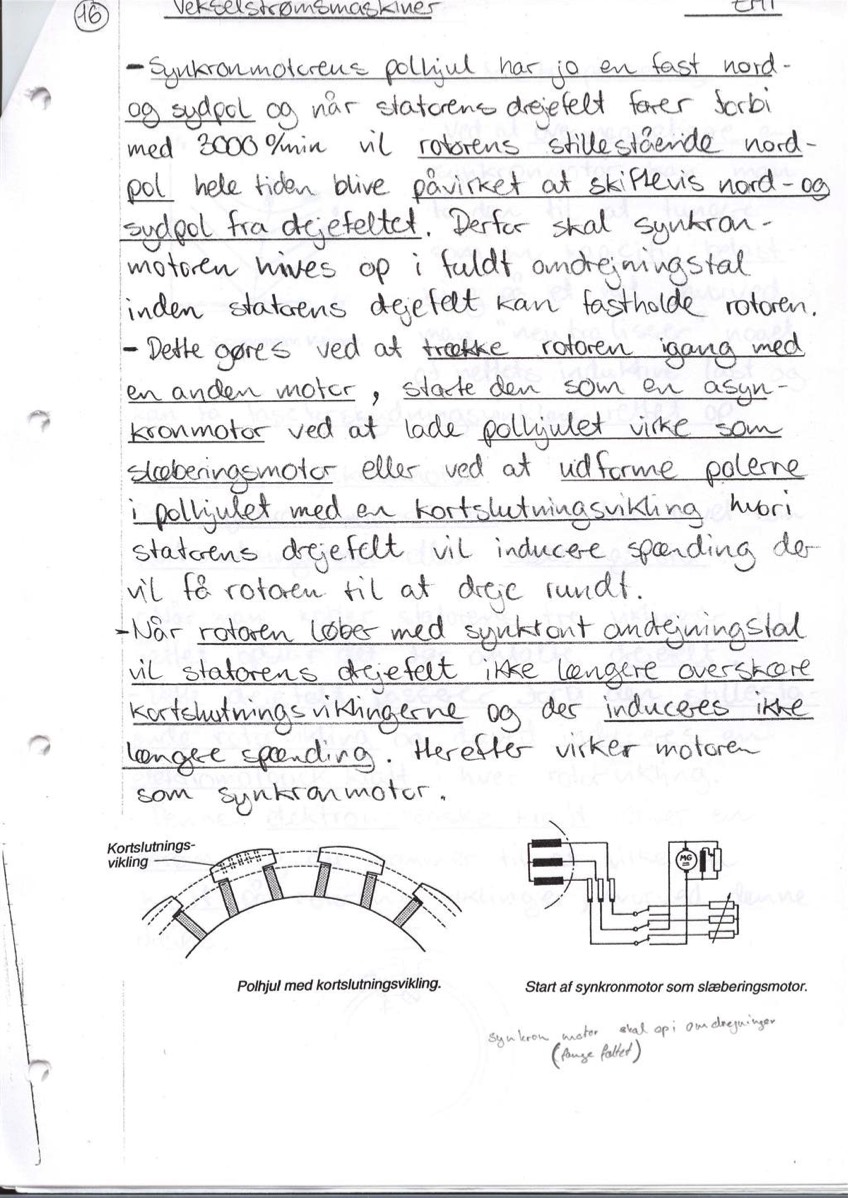 16
Vekselstrømsmaskiner
EMT
- Synkronmotorens polhjul har jo en fast nord-
og sydpol og når statorens drejefelt farer forbi
med 3000 º/min vil rotorens stillestående nord-
pol hele tiden blive påvirket af skiftevis nord- og
sydpol fra drejefeltet. Derfor skal synkron-
motoren hives op i fuldt omdrejningstal
inden statorens drejefelt kan fastholde rotoren.
- Dette gøres ved at trække rotoren igang med
en anden motor, starte den som en asyn-
kronmotor ved at lade polhjulet virke som
slæberingsmotor eller ved at udforme polerne
i polhjulet med en kortslutningsvikling hvori
statorens drejefelt vil inducere spænding der
vil få rotoren til at dreje rundt.
- Når rotoren løber med synkront omdrejningstal
vil statorens drejefelt ikke længere overskære
kortslutningsviklingerne og der induceres ikke
længere spænding. Herefter virker motoren
som synkronmotor.
Kortslutnings-
vikling
MG
Polhjul med kortslutningsvikling.
Start af synkronmotor som slæberingsmotor.
synkron motor skal op i omdrejninger
(fange feltet)